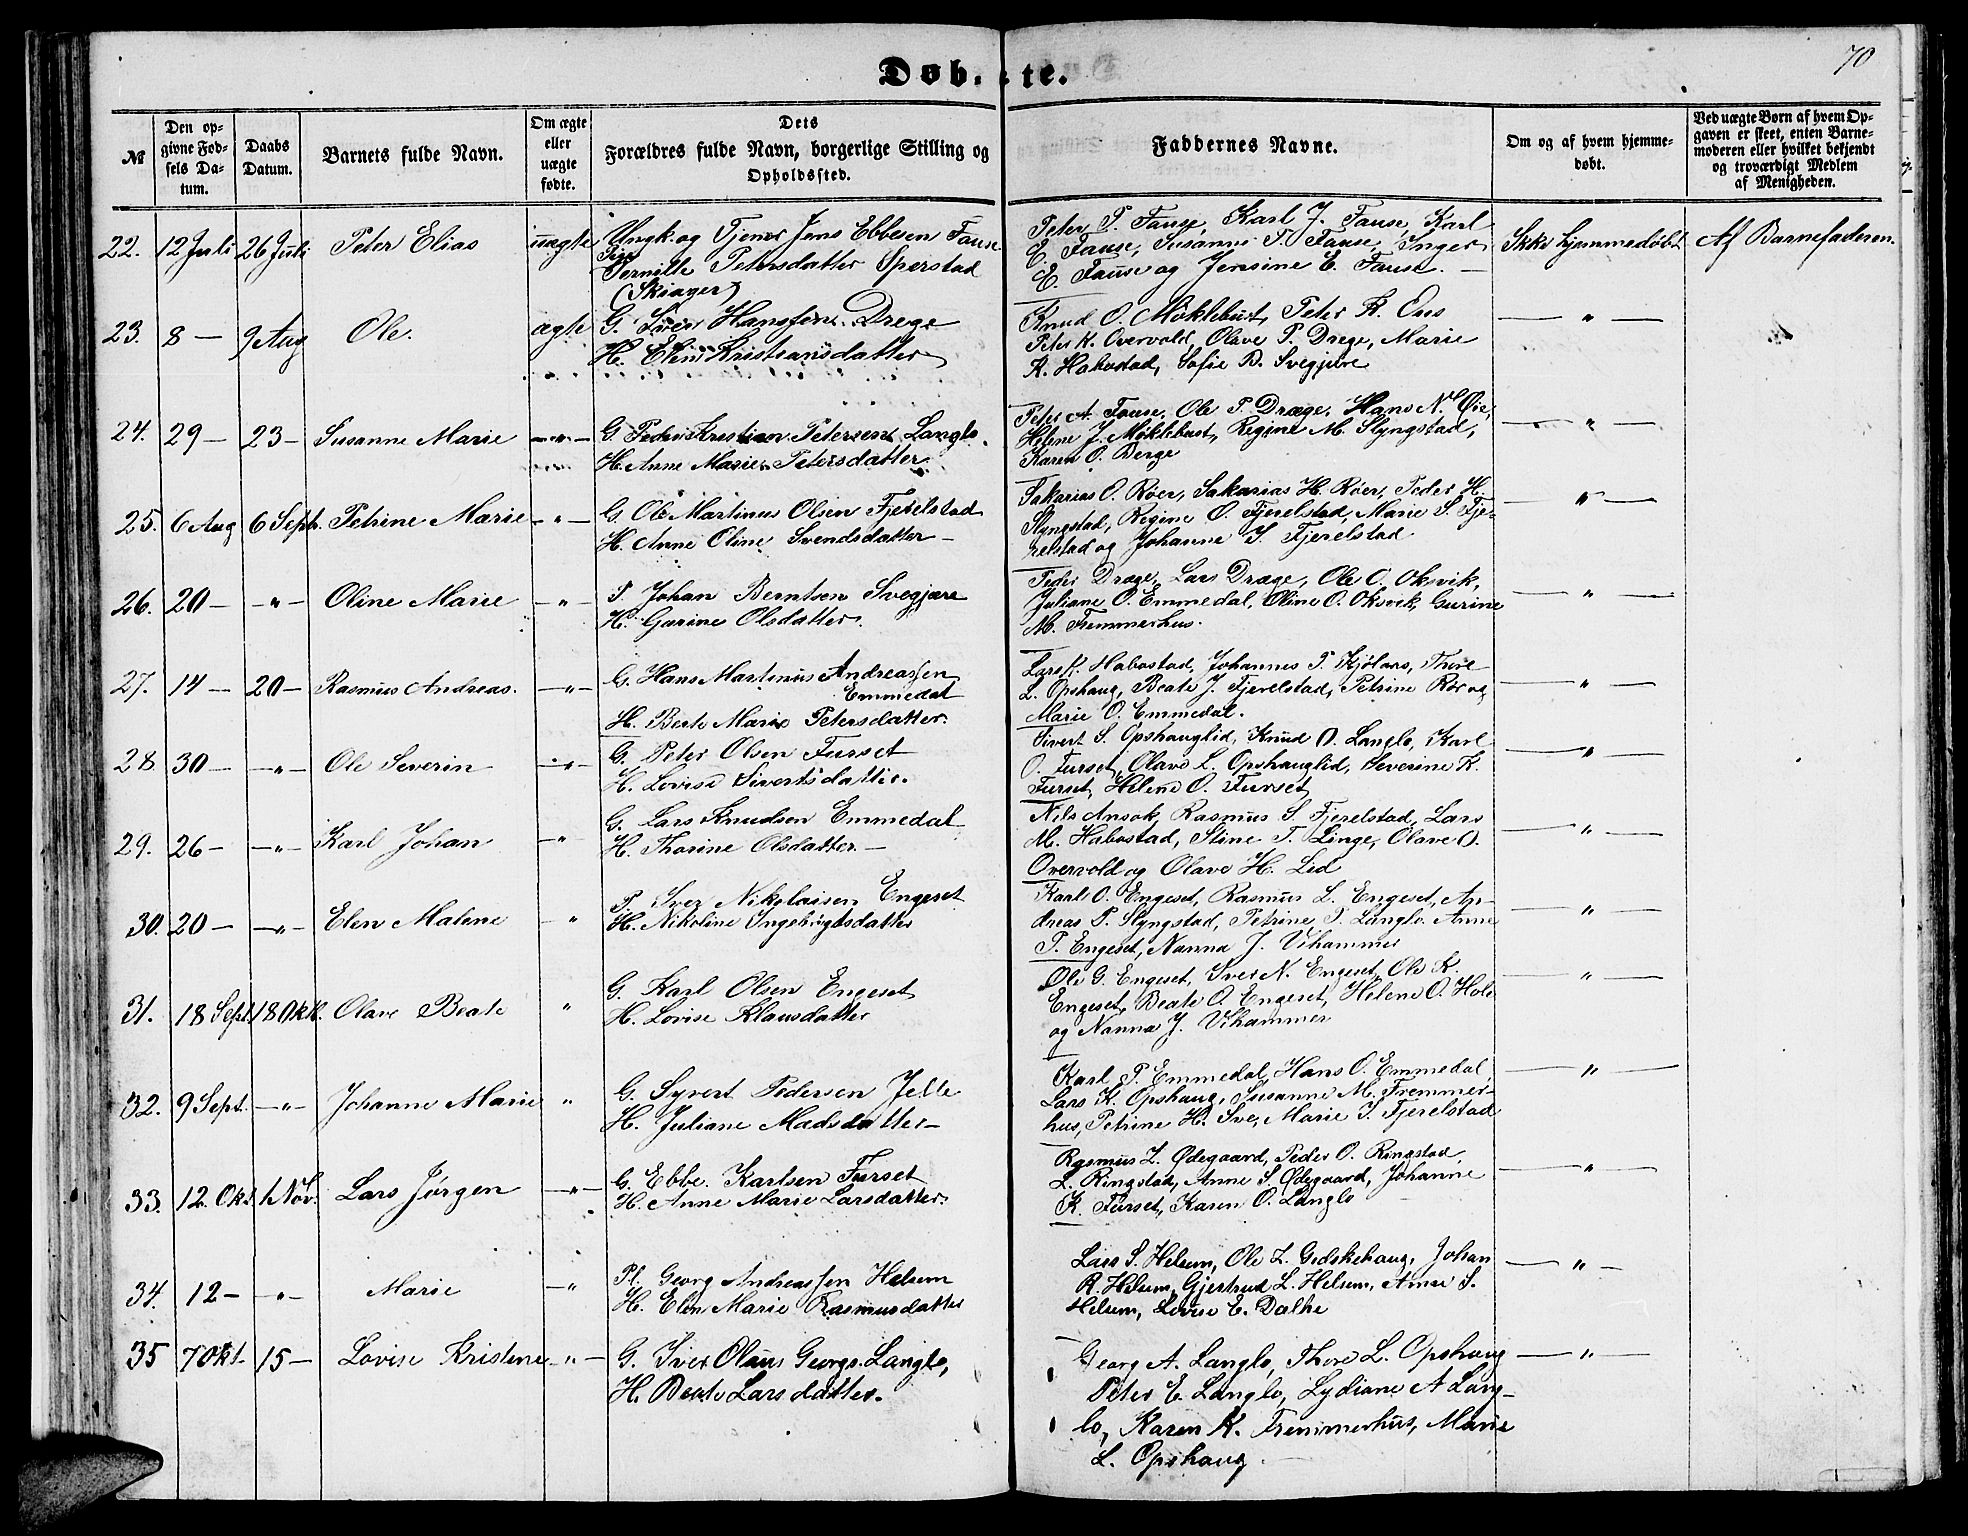 70
Døb- te.
№
Den op-
givne Fød-
sels Da-
tum.
Daabs
Datum.
Barnets fulde Navn.
Om ægte
eller
uægte
fødte.
Dets
Forældres fulde Navn, borgerlige Stilling og
Opholdssted.
Faddernes Navne.
Om og af hvem hjemme-
døbt.
Ved uægte Børn af hvem Op-
gaven er skeet, enten Barne-
moderen eller hvilket bekjendt
og troværdigt Medlem
af Menigheden.
22. 12 Juli 26 Juli Peter Elias uægte Ungk. og Tjener Jens Ebbesen Fause
Pige Pernille Petersdatter Sperstad
(Skinger)
Peter P. Fause, Karl J. Fause, Karl
E. Fause, Susanne P. Fause, Inger
E. Fause og Jensine E. Fause. —
Ikke hjemmedøbt Af Barnefaderen.
23. 8 — 9 Aug Ole. ægte G. Iver Hanssen Drege
H. Eline Kristiansdatter
Knud O. Møklebust, Peter K. Oves
Peter K. Overvold, Olave P. Drege, Marie
K. Habostad, Sofie B. Svegjære
— " —
24. 29 — 23 — Susanne Marie — " — G. Peder Kristian Petersen Langlo.
H. Anne Marie Petersdatter
Peter A. Fause, Ole P. Dræge, Hans N. Øie,
Helene J. Møklebust, Regine M. Slyngstad,
Karen O. Berge
— " —
25. 6 Aug 6 Sept. Petrine Marie — " — G. Ole Martinus Olsen Fjerelstad
H. Anne Oline Svendsdatter —
Sakarias O. Røer, Sakarias H. Røer, Peder H.
Slyngstad, Regine O. Fjerelstad, Marie S. Fje-
relstad og Johanne S. Fjerelstad
— " —
26. 20 — — " — Oline Marie — " — P. Johan Berntsen Svegjære
H. Gurine Olsdatter.
Peder Dræge, Lars Dræge, Ole O. Oksvik,
Juliane O. Emmedal, Oline O. Oksvik, Gurine
M. Fremmerhus.
— " —
27. 14 — 20 — Rasmus Andreas. — " — G. Hans Martinus Andreassen
Emmedal
H. Berte Marie Petersdatter.
Lars K. Habostad, Johannes P. Kjølaas, Thore
L. Opshaug, Beate J. Fjerelstad, Petrine Rør og
Marie O. Emmedal.
— " —
28 30 — — " — Ole Severin — " — G. Peter Olsen Furset
H. Lovise Sivertsdatter.
Sivert S. Opshauglid, Knud O. Langlo, Karl
O. Furset, Olave L. Opshauglid, Severine K.
Furset, Helene O. Furset
— " —
29. 26 — — " — Karl Johan — " G. Lars Knudsen Emmedal
H. Thorine Olsdatter. —
Nils Ansok, Rasmus S. Fjerelstad, Lars
M. Habostad, Stine T. Linge, Olave O.
Overvold og Olave H. Lid
— " —
30. 20 — — " — Elen Malene — " P. Iver Nikolaisen Engeset
H. Nikoline Ingebrigtsdatter
Karl O. Engeset, Rasmus L. Engeset, An-
dreas P. Slyngstad, Petrine P. Langlo, Anne
P. Engeset, Nanna J. Vihammer
— " —
31. 18 Sept. 18 Okt. Olave Beate " G. Karl Olsen Engeset
H. Lovise Klausdatter
Ole G. Engeset, Iver N. Engeset, Ole K.
Engeset, Beate O. Engeset, Helene O. Hole
og Nanna J. Vihammer
— " —
32. 9 Sept. — " — Johanne Marie " G. Syvert Pedersen Jelle
H. Juliane Madsdatter —
Karl P. Emmedal, Hans O. Emmedal
Lars K. Opshaug, Susanne M. Fremmer-
hus, Petrine H. Sve, Marie S. Fjerelstad
— " —
33. 12. Okt. 1 Nov. Lars Jørgen — " — G. Ebbe Karlsen Furset
H. Anne Marie Larsdatter.
Rasmus L. Ødegaard, Peder O. Ringstad,
L. Ringstad, Anne S. Ødegaard, Johanne
K. Furset, Karen O. Langlo
— " —
34. 12 — — " — Marie — " Pl. Georg Andreassen Helsem
H. Elen Marie Rasmusdatter
Lars S. Helsem, Ole L. Gidskehaug, Johan
R. Helsem, Gjertrud L. Helsem, Anne S.
Helsem, Lovise E. Dalhe
— " —
35 7 Okt. 15 — Lovise Kristine — " — G. Iver Olaus Georgs. Langlo,
H. Beate Larsdatter.
Georg A. Langlo, Thore L. Opshaug
Peter E. Langlo, Lydiane A Lang-
lo, Karen K. Fremmerhus, Marie
L. Opshaug.
— " —